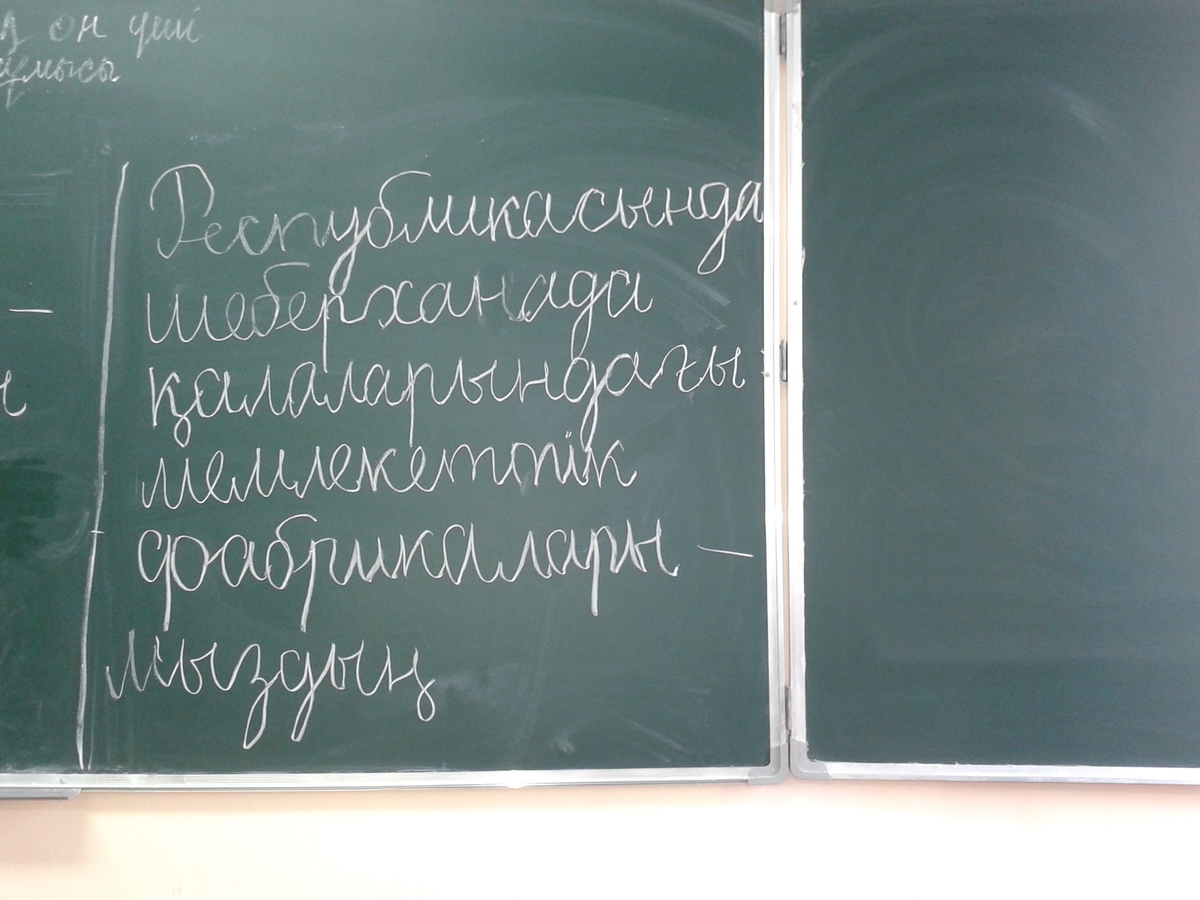 он үші
Республикасында
шеберханада
қалаларындағы
мемлекеттік
фабрикалары –
мыздың